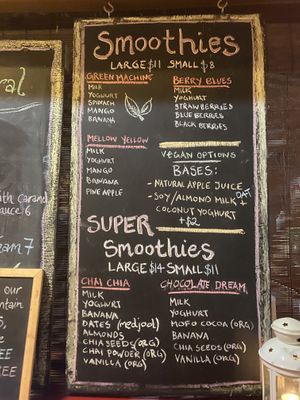 Smoothies
LARGE $11 SMALL $8
GREEN MACHINE
MILK
YOGHURT
SPINACH
MANGO
BANANA
BERRY BLUES
MILK
YOGHURT
STRAWBERRIES
BLUE BERRIES
BLACK BERRIES
MELLOW YELLOW
MILK
YOGHURT
MANGO
BANANA
PINE APPLE
VEGAN OPTIONS
BASES:
- NATURAL APPLE JUICE
- SOY/ALMOND MILK + OAT
COCONUT YOGHURT
+$2
SUPER
Smoothies
LARGE $14 SMALL $11
CHAI CHIA
MILK
YOGHURT
BANANA
DATES (medjool)
ALMONDS
CHIA SEEDS (ORG)
CHAI POWDER (ORG)
VANILLA (ORG)
CHOCOLATE DREAM
MILK
YOGHURT
MOFO COCOA (ORG)
BANANA
CHIA SEEDS (ORG)
VANILLA (ORG)
ral
ith caram
auce 6
am 7
our
ntain